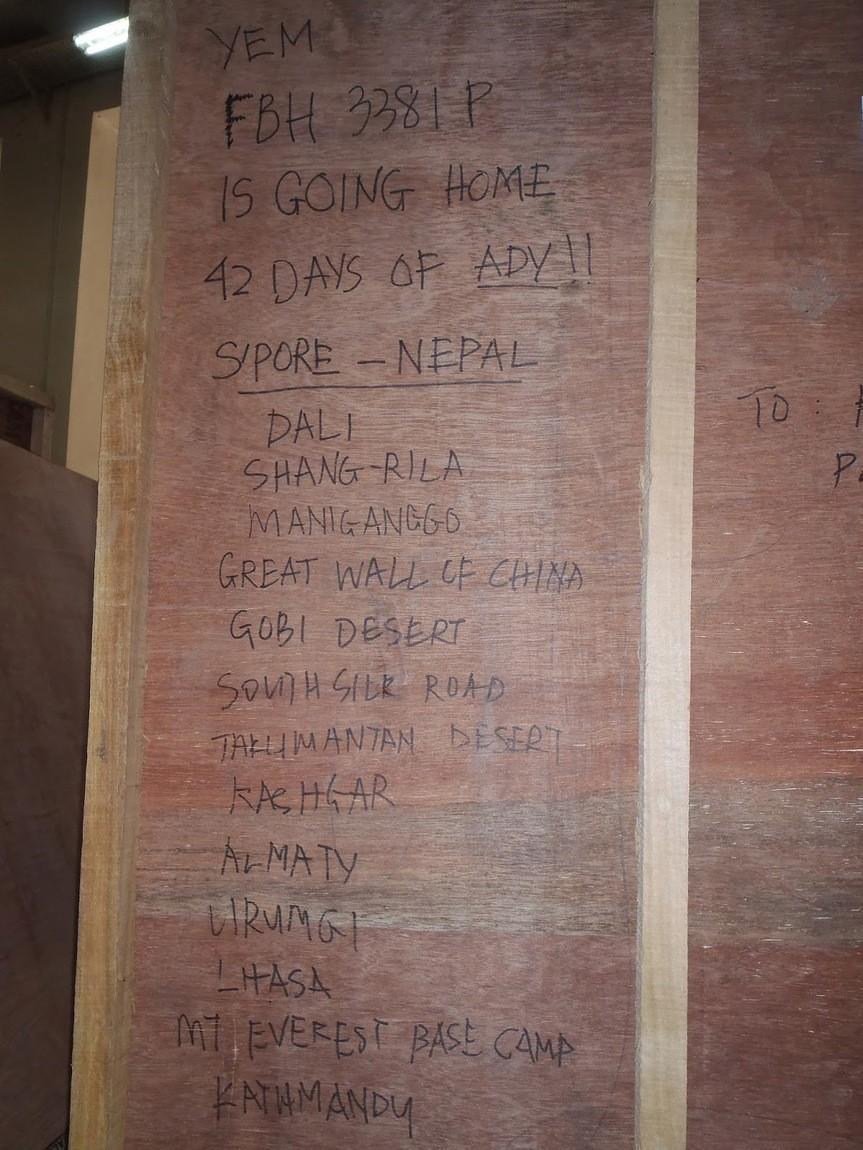 YEM
FBH 3381 P
IS GOING HOME
42 DAYS OF ADY!!
S'PORE – NEPAL
DALI
SHANG-RILA
MANIGANGGO
GREAT WALL OF CHINA
GOBI DESERT
SOUTH SILK ROAD
TAKLIMANTAN DESERT
KASHGAR
ALMATY
URUMGI
LHASA
MT EVEREST BASE CAMP
KATHMANDU
TO :